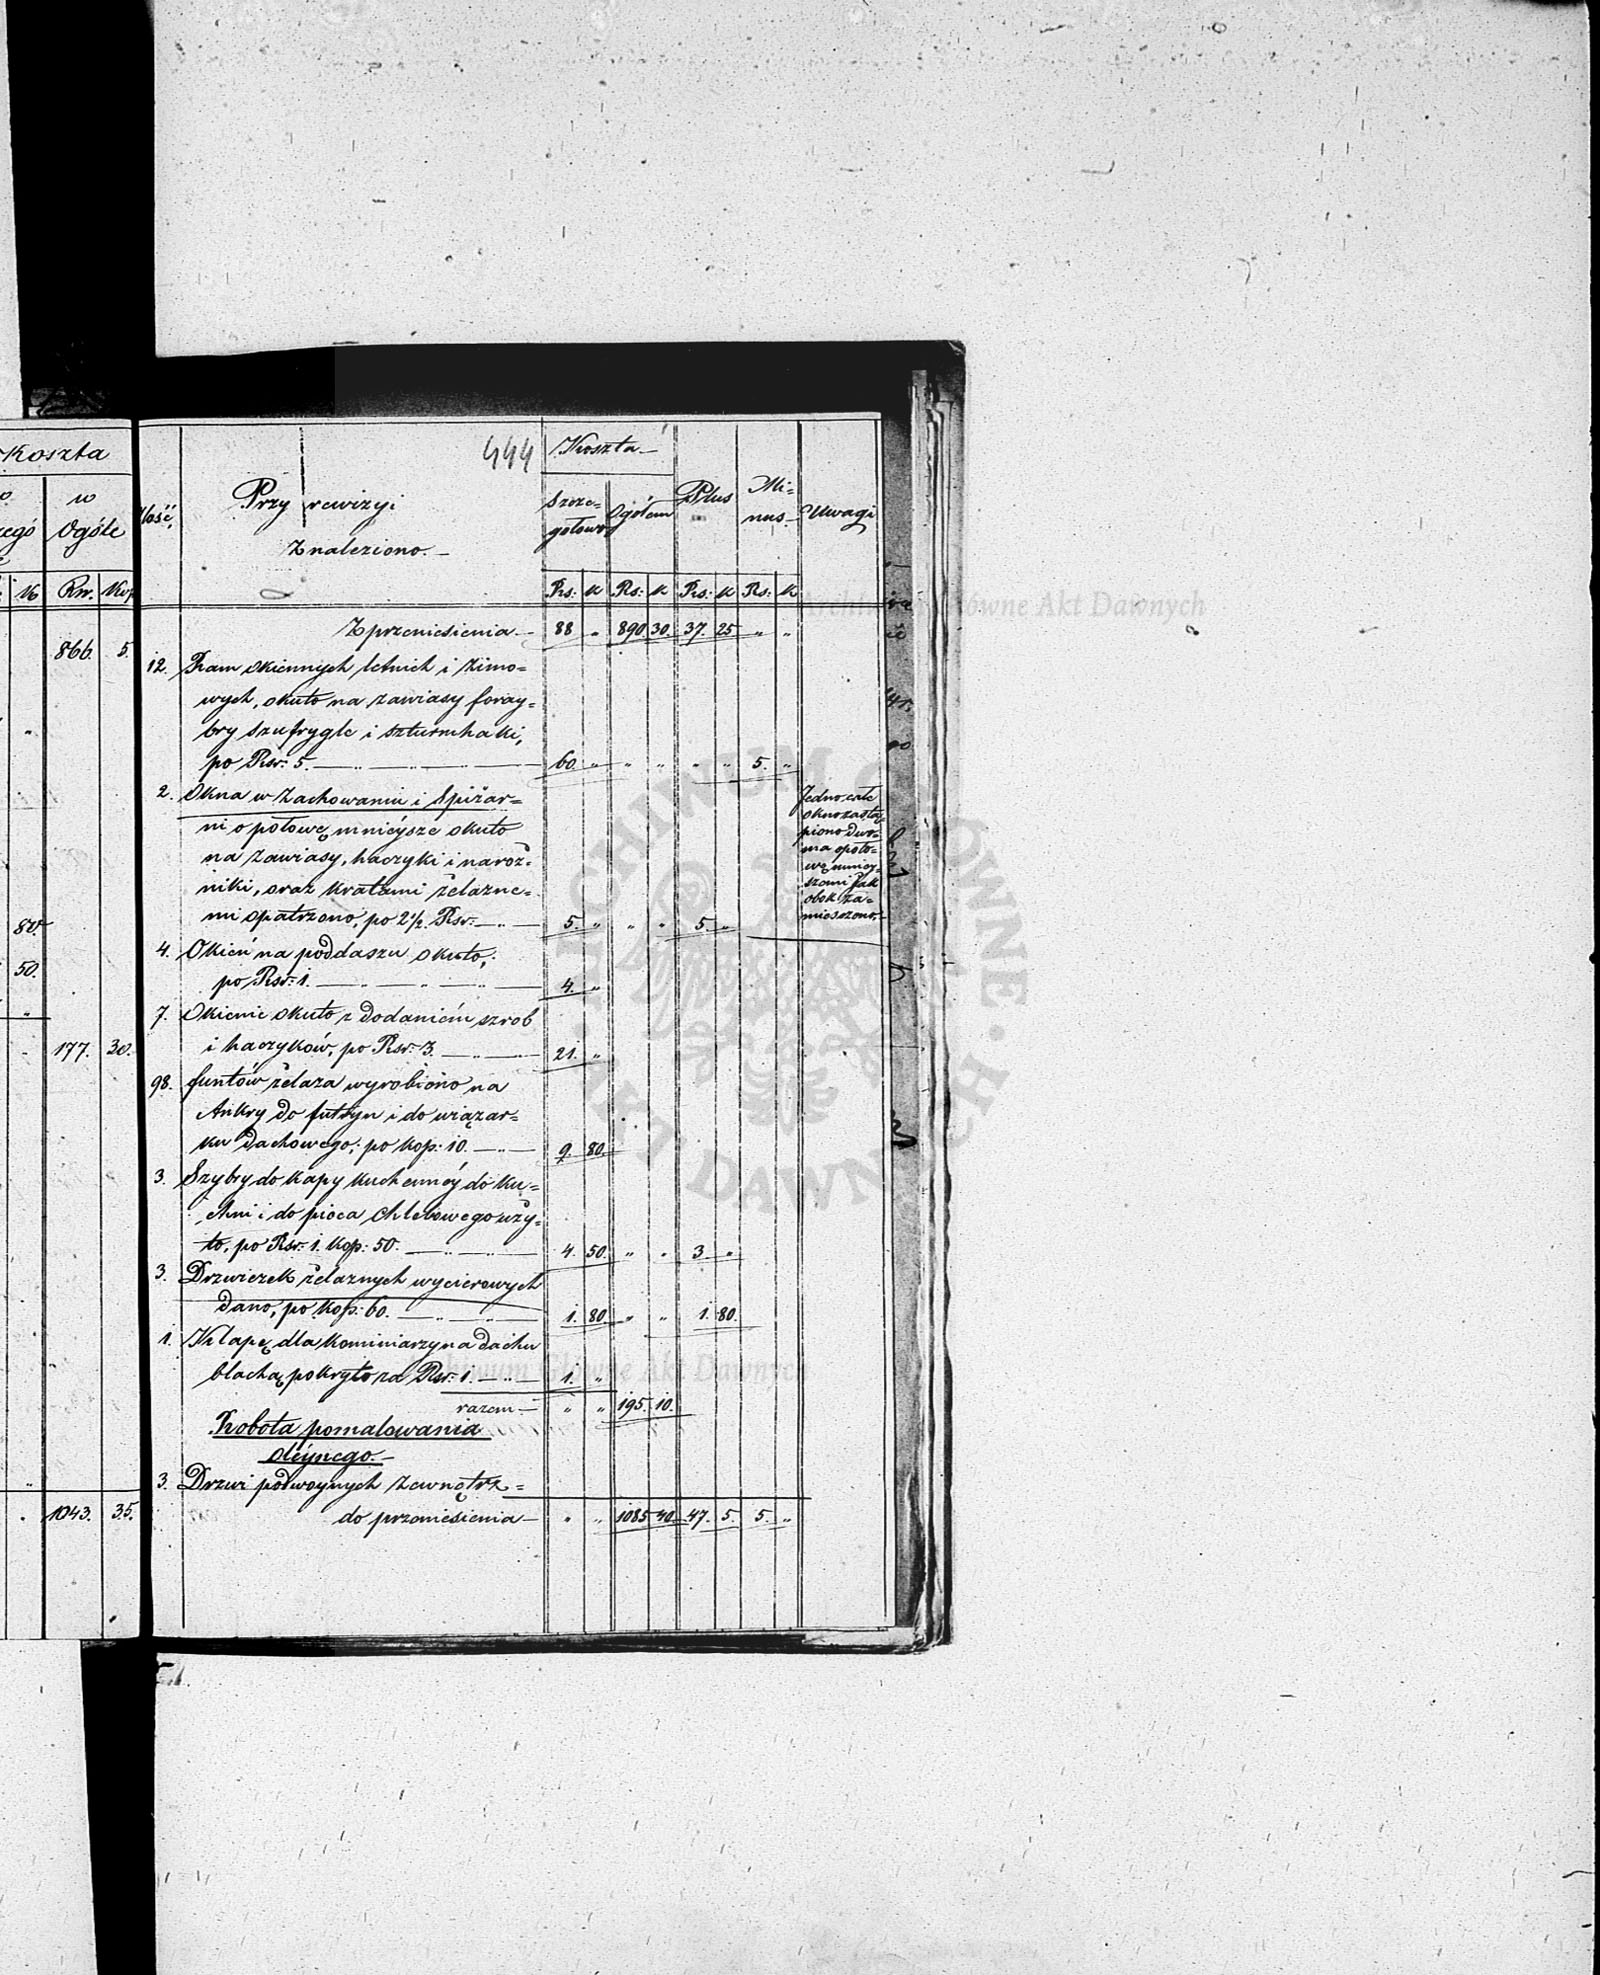 Koszta
w
Ogóle
K
Rsr. Kop
866. 5.
80.
50.
177. 30.
1043. 35.
444
Ilość,
Przy rewizyi
Znaleziono.
Koszta
Szcze=
gółowo
Ogółem
Plus
Mi=
nus.
Uwagi
Rs: K Rs: K Rs: K Rs: K
Z przeniesienia. 88 „ 890 30. 37. 25 „ „
12. Ram okiennych letnich i zimo=
wych, okuto na zawiasy foray=
bry szufrygle i szturmhaki,
po Rsr: 5. 60. „ „ „ „ „ 5. „
2. Okna w Zachowaniu i Spiżar=
ni o połowę mnieysze okuto
na zawiasy, haczyki i naroż=
niki, oraz kratami żelazne=
mi opatrzono, po 2 1/2. Rsr: 5. „ „ „ 5. „
Jedno całe
okno zastą=
piono dwo=
ma o poło=
wę mniey=
szemi jak
obok za=
mieszono.
4. Okień na poddaszu okuto,
po Rsr: 1. 4. „
7. Okienic okuto z dodaniem szrob
i haczyków, po Rsr: 3. 21. „
98. funtów żelaza wyrobiono na
Ankry do futryn i do wiązar=
ku dachowego; po kop: 10. 9. 80.
3. Szybry do kapy kuchennéy do ku=
chni i do pieca chlebowego uży=
to, po Rsr: 1. kop: 50. 4. 50. „ „ 3 „
3. Drzwiczek żelaznych wycierowych
dano, po kop: 60. 1. 80. „ „ 1. 80.
1. Klapę dla kominiarzy na dachu
blachą pokryto za Rsr: 1. 1. „
razem „ „ 195. 10.
Robota pomalowania
oleynego.
3. Drzwi podwoynych Zewnętrz=
do przeniesienia „ „ 1085 40. 47. 5. 5. „
Archiwum Główne Akt Dawnych
ARCHIWUM GŁÓWNE AKT DAWNYCH
Archiwum Główne Akt Dawnych